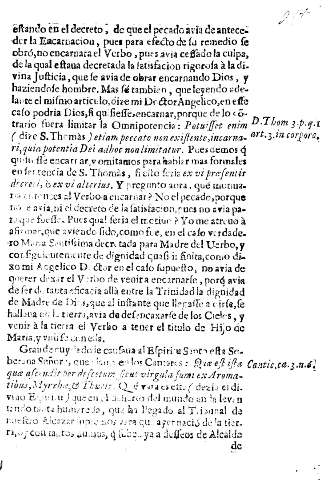 estando en el decreto, de que el pecado avia de antece-
der la Encarnacion, pues para efecto de su remedio se
obrò, no encarnara el Verbo, pues avia cessado la culpa,
de la qual estava decretada la satisfacion rigorosa à la di-
vina Justicia, que se avia de obrar encarnando Dios, y
haziendose hombre. Mas sè tambien, que leyendo ade-
lante el mismo articulo, dize mi Doctor Angelico, en este
caso podria Dios, si quisiesse, encarnar, porque de lo cō-
trario fuera limitar la Omnipotencia: Potuisset enim
(dize S. Thomàs) etiam peccato non existente, incarna-
ri, quia potentia Dei ad hoc non limitatur. Pues demos q
quisiesse encarnar, y omitamos para hablar mas formales
en sentencia de S. Thomàs, si esto seria ex vi præsentis
decreti, ò ex vi alterius. Y pregunto aora, què
al Verbo à encarnar? No el pecado, porque
no le avia, ni el decreto de la satisfacion, pues no avia pa-
ra que fuesse. Pues qual seria el motivo? Yo me atrevo à
afirmar, que aviendo sido, como fue, en el caso verdade-
ro Maria Santissima decretada para Madre del Verbo, y
consiguientemente de dignidad quasi infinita, como di-
xo mi Angelico Doctor en el caso supuesto, no avia de
querer dexar el Verbo de venir a encarnarse, porq avia
de ser de tanta eficacia allà entre la Trinidad la dignidad
de Madre de Dios, que al instante que
en la tierra, avia de desencaxarse de los Cielos, y
venir à la tierra el Verbo à tener el titulo de Hijo de
Maria,
Grande causava al Espiritu Santo esta So-
berana Señora, en los Cantares: Quæ est ista
quæ ascendit per desertum sicut virgula fumi ex Aroma-
tibus, Myrrhæ, & Thuris. Què (dezia el di-
vino Espiritu) que en del mundo
ha llegado al Tribunal de
nuestro Alcazar de la tier-
ra, con tantos humos, q sube ya à desseos de Alcalda
de
D. Thom. 3. p. q. 1
art. 3. in corpore,
Cantic. ca. 3. n. 6.